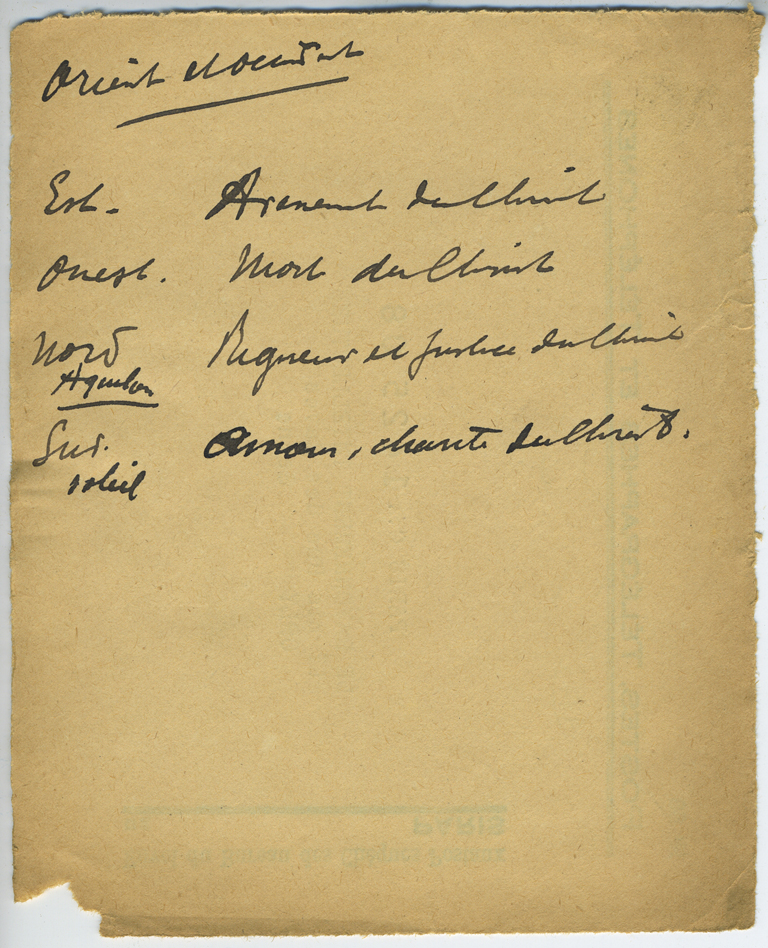 Orient et occident
Est. Avènement du Christ
Ouest. Mort du Christ
Nord Rigueur et justice du Christ
Aquilon
Sud. Amour, charité du Christ.
soleil
PARIS